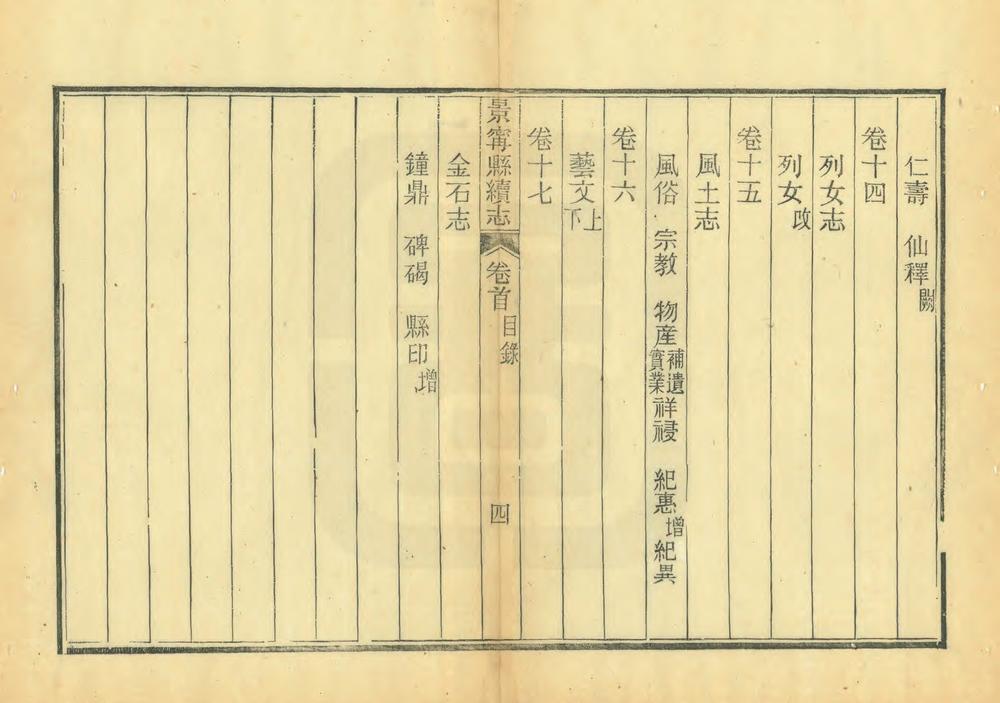 仁壽　仙釋闕
卷十四
列女志
列女改
卷十五
風土志
風俗　宗教　物産補遺實業祥祲　紀惠增紀異
卷十六
藝文上下
卷十七
景甯縣續志　卷首目錄　四
金石志
鐘鼎　碑碣　縣印增